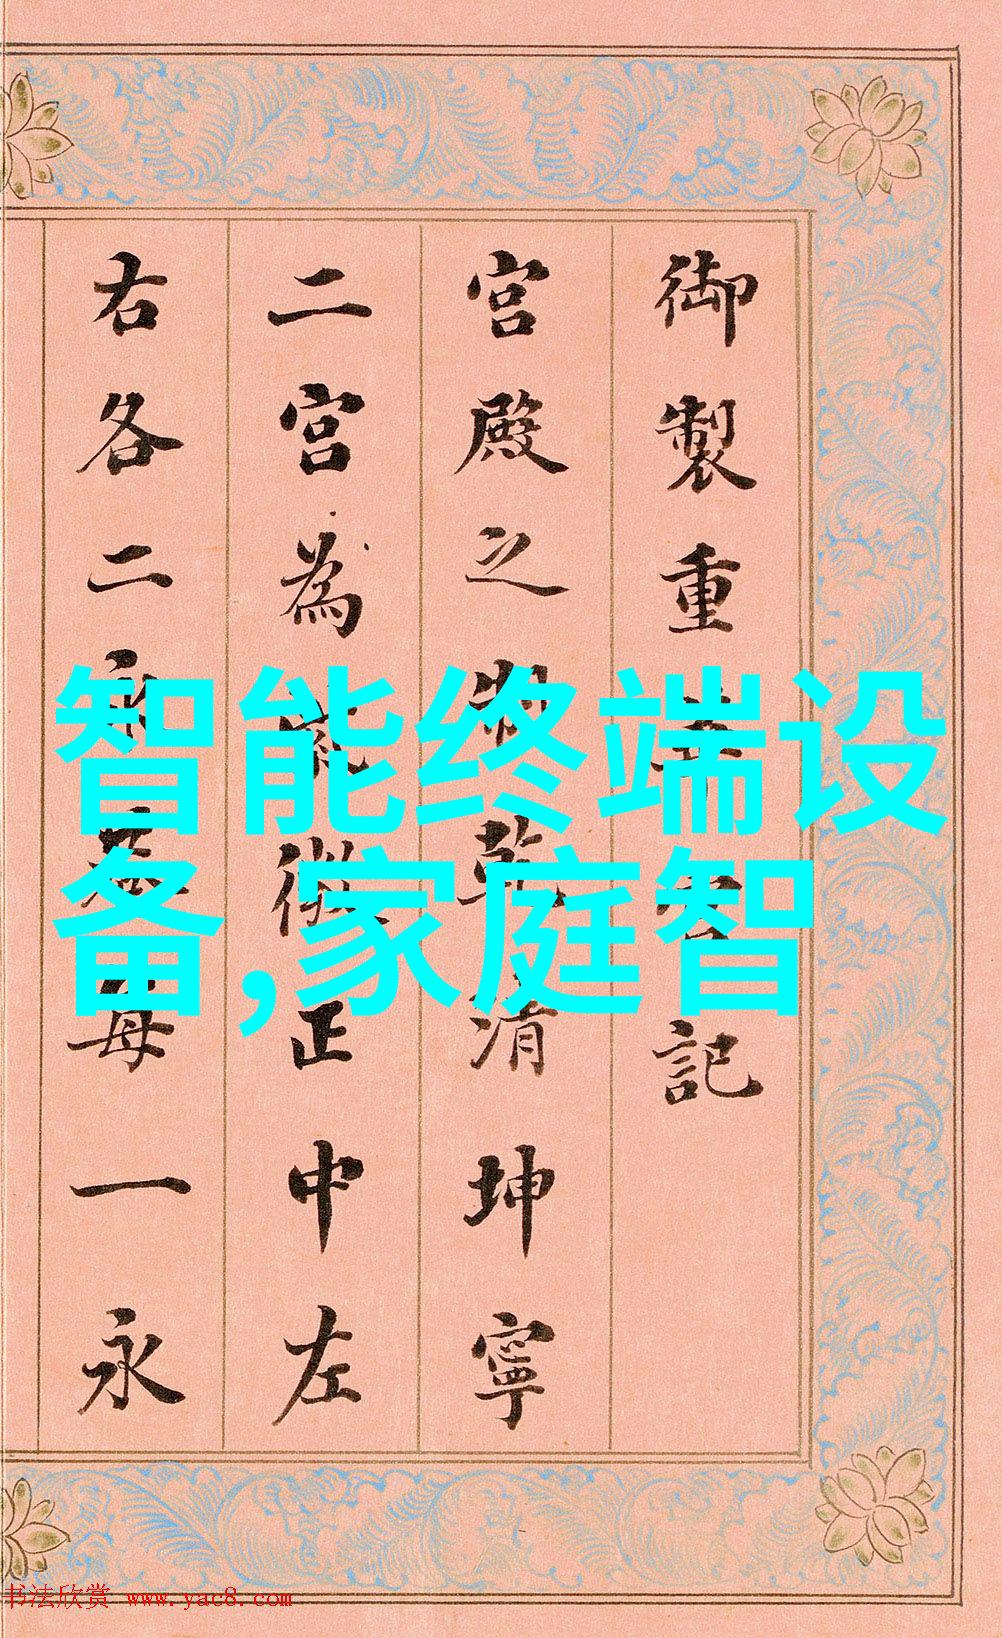 御製重華宮記
宮殿之制乾清坤寧
二宮為紫微正中左
右各二永巷每一永
智能终端设
备,家庭智
书法欣赏 www.yac8.com